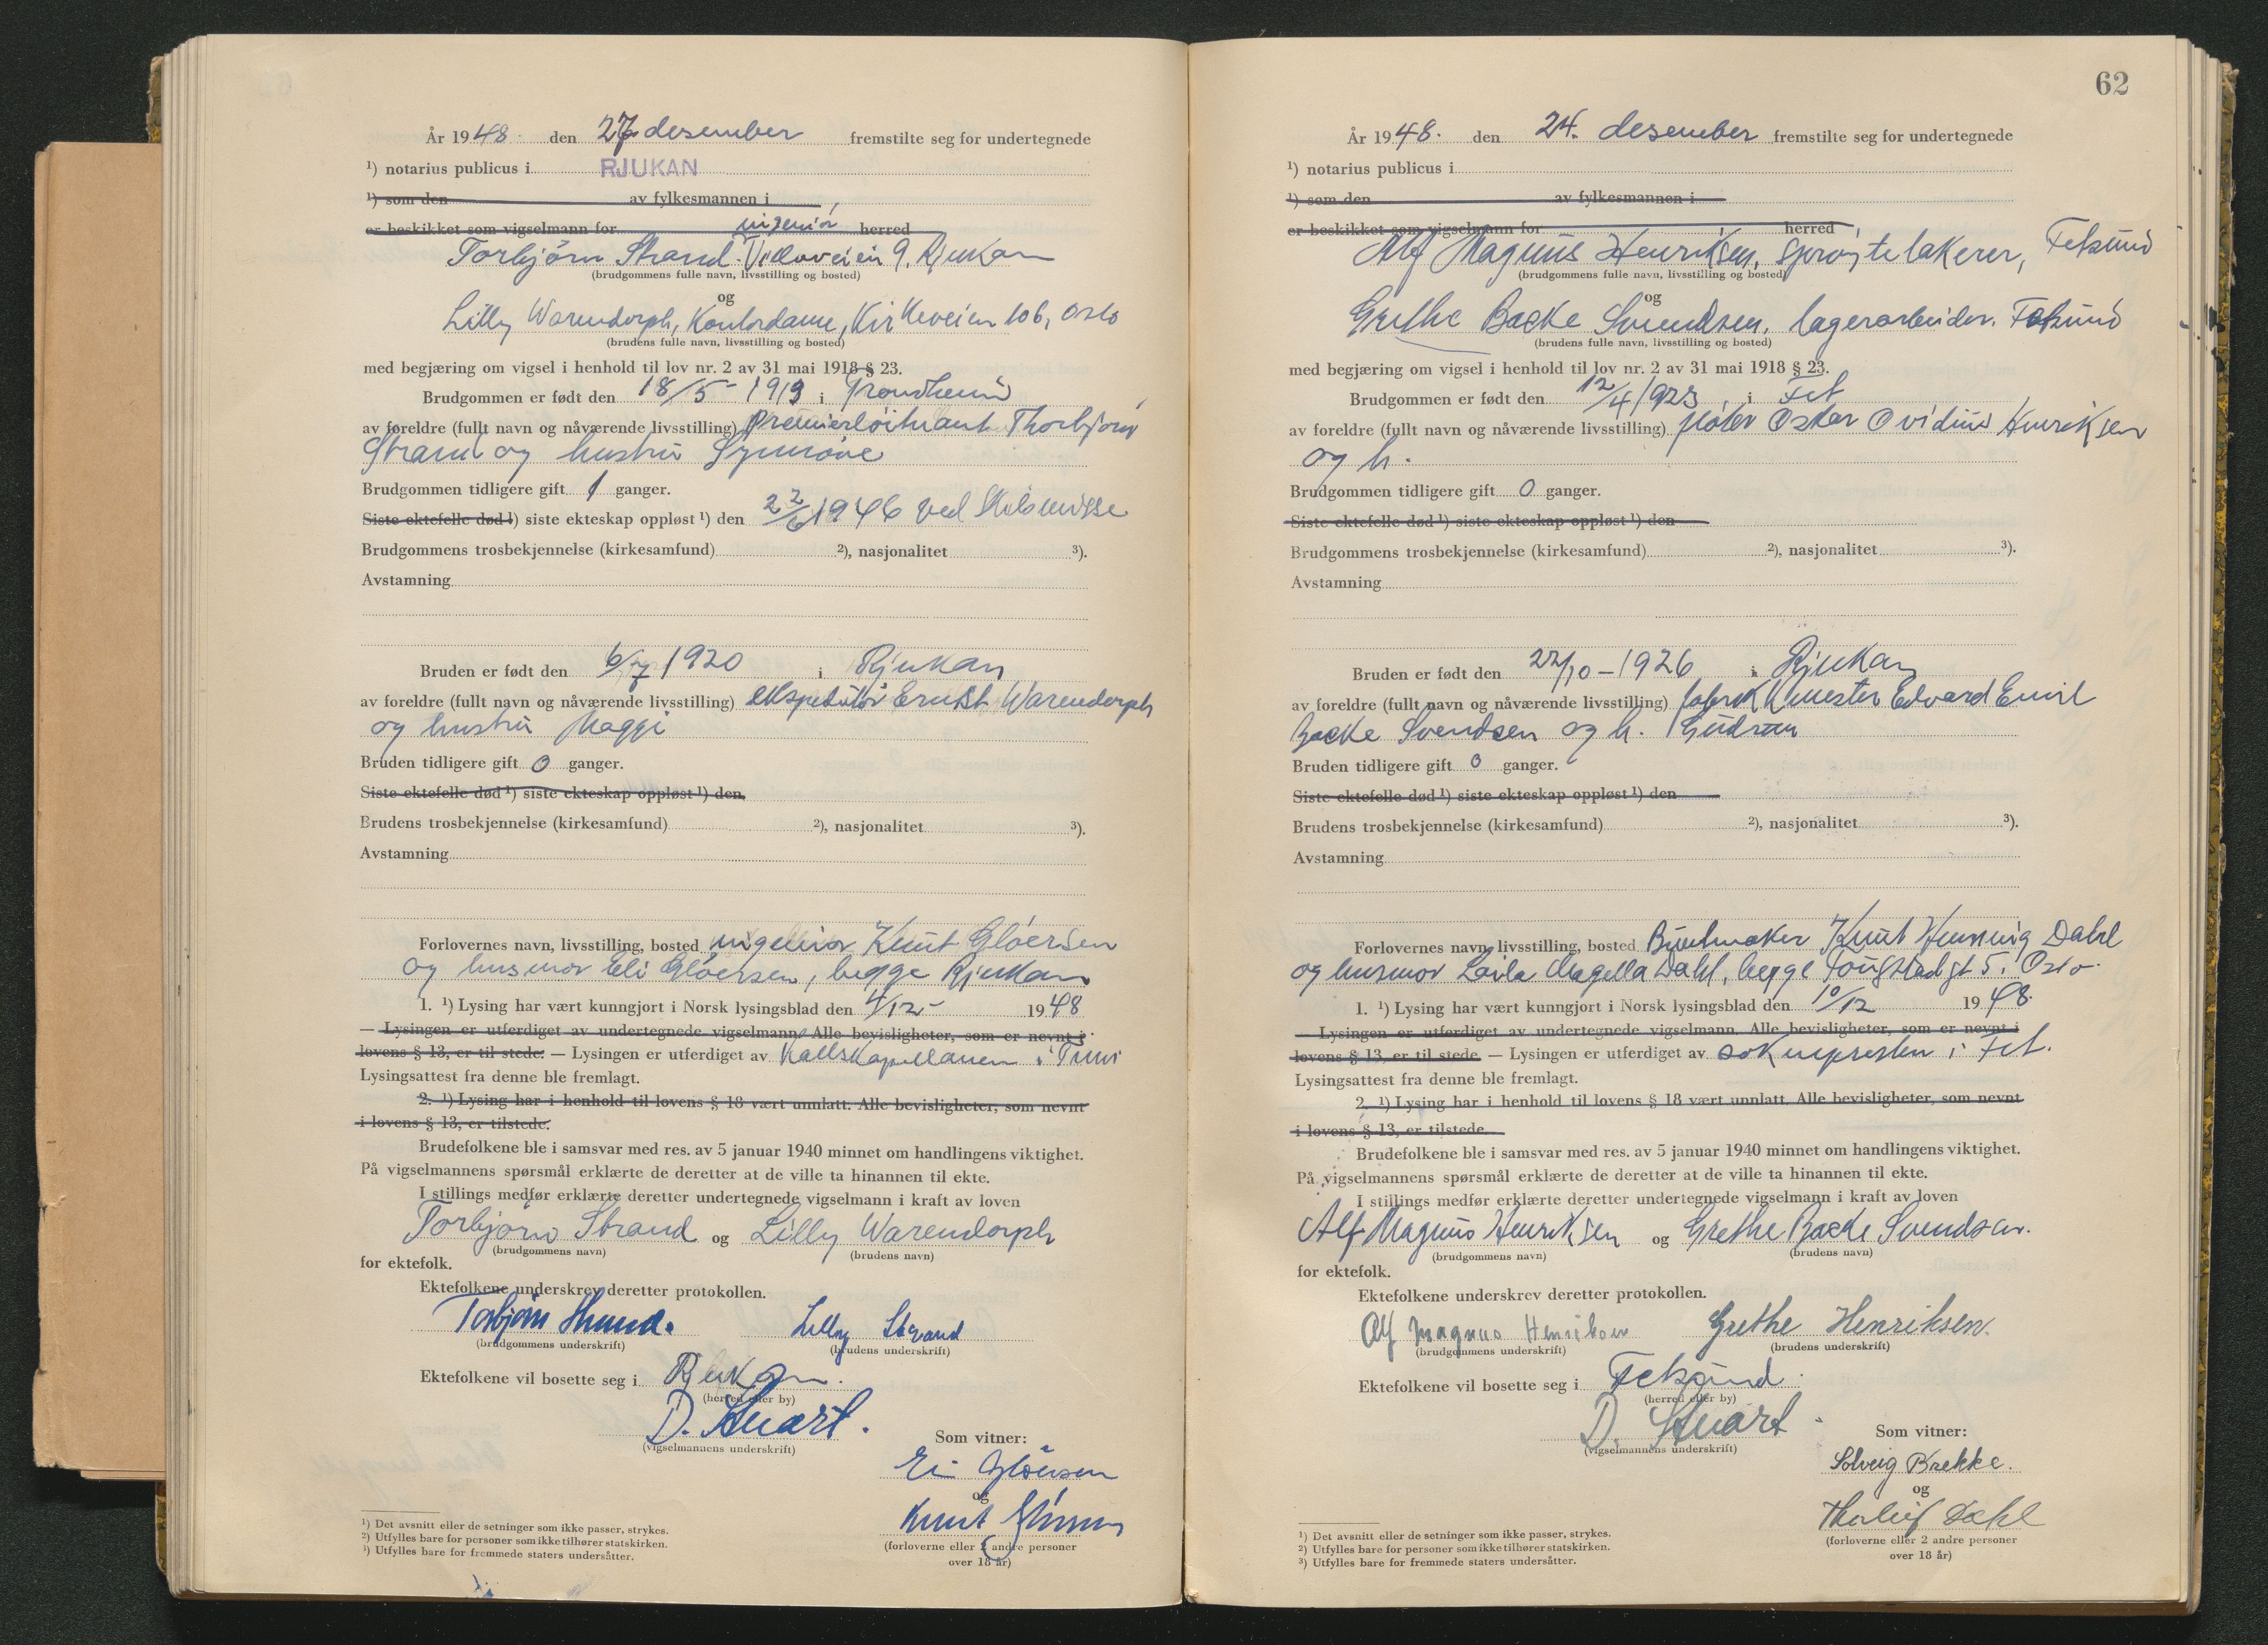 År 1948. den 27 desember fremstilte seg for undertegnede
¹) notarius publicus i RJUKAN
¹) som den av fylkesmannen i
er beskikket som vigselmann for herred
ingeniør
Torbjørn Strand. Villaveien 9, Rjukan
(brudgommens fulle navn, livsstilling og bosted)
og
Lilly Warendorph, Kontordame, Kirkeveien 106, Oslo
(brudens fulle navn, livsstilling og bosted)
med begjæring om vigsel i henhold til lov nr. 2 av 31 mai 1918 § 23.
Brudgommen er født den 18/5 - 1919 i Trondheim
av foreldre (fullt navn og nåværende livsstilling) premierløitnant Thorbjørn
Strand og hustru Synnøve
Brudgommen tidligere gift 1 ganger.
Siste ektefelle død ¹) siste ekteskap oppløst ¹) den 22/6 1946 ved Skilsmisse
Brudgommens trosbekjennelse (kirkesamfund) ²), nasjonalitet ³).
Avstamning
Bruden er født den 6/7 1920 i Rjukan
av foreldre (fullt navn og nåværende livsstilling) ekspeditør Ernst Warendorph
og hustru Maggi
Bruden tidligere gift 0 ganger.
Siste ektefelle død ¹) siste ekteskap oppløst ¹) den
Brudens trosbekjennelse (kirkesamfund) ²), nasjonalitet ³).
Avstamning
Forlovernes navn, livsstilling, bosted ingeniør Knut Gløersen
og husmor Eli Gløersen, begge Rjukan
1. ¹) Lysing har vært kunngjort i Norsk lysingsblad den 4/12 - 1948
— Lysingen er utferdiget av undertegnede vigselmann. Alle bevisligheter, som er nevnt i
lovens § 13, er til stede. — Lysingen er utferdiget av Kallskapellanen i Tinn
Lysingsattest fra denne ble fremlagt.
2. ¹) Lysing har i henhold til lovens § 18 vært unnlatt. Alle bevisligheter, som nevnt
i lovens § 13, er tilstede.
Brudefolkene ble i samsvar med res. av 5 januar 1940 minnet om handlingens viktighet.
På vigselmannens spørsmål erklærte de deretter at de ville ta hinannen til ekte.
I stillings medfør erklærte deretter undertegnede vigselmann i kraft av loven
Torbjørn Strand og Lilly Warendorph
(brudgommens navn) (brudens navn)
for ektefolk.
Ektefolkene underskrev deretter protokollen.
Torbjørn Strand. Lilly Strand
(brudgommens underskrift) (brudens underskrift)
Ektefolkene vil bosette seg i Rjukan.
(herred eller by)
D. Stuart.
(vigselmannens underskrift)
Som vitner:
Eli Gløersen
og
Knut Gløersen
(forloverne eller 2 andre personer
over 18 år)
¹) Det avsnitt eller de setninger som ikke passer, strykes.
²) Utfylles bare for personer som ikke tilhører statskirken.
³) Utfylles bare for fremmede staters undersåtter.
62
År 1948. den 24. desember fremstilte seg for undertegnede
¹) notarius publicus i
¹) som den av fylkesmannen i
er beskikket som vigselmann for herred
Alf Magnus Henriksen, sprøytelakerer, Fetsund
(brudgommens fulle navn, livsstilling og bosted)
og
Grethe Backe Svendsen, lagerarbeider. Fetsund
(brudens fulle navn, livsstilling og bosted)
med begjæring om vigsel i henhold til lov nr. 2 av 31 mai 1918 § 23.
Brudgommen er født den 12/4 1923, i Fet
av foreldre (fullt navn og nåværende livsstilling) fløter Oskar Ovidius Henriksen
og h.
Brudgommen tidligere gift 0 ganger.
Siste ektefelle død ¹) siste ekteskap oppløst ¹) den
Brudgommens trosbekjennelse (kirkesamfund) ²), nasjonalitet ³).
Avstamning
Bruden er født den 22/10 - 1926 i Rjukan
av foreldre (fullt navn og nåværende livsstilling) fabrikkmester Edvard Emil
Backe Svendsen og h. Gudrun
Bruden tidligere gift 0 ganger.
Siste ektefelle død ¹) siste ekteskap oppløst ¹) den
Brudens trosbekjennelse (kirkesamfund) ²), nasjonalitet ³).
Avstamning
Forlovernes navn, livsstilling, bosted Buntmaker Knut Henning Dahl
og husmor Laila Magella Dahl, begge Fougstadgt 5, Oslo.
1. ¹) Lysing har vært kunngjort i Norsk lysingsblad den 10/12 1948.
— Lysingen er utferdiget av undertegnede vigselmann. Alle bevisligheter, som er nevnt i
lovens § 13, er til stede. — Lysingen er utferdiget av soknepresten i Fet.
Lysingsattest fra denne ble fremlagt.
2. ¹) Lysing har i henhold til lovens § 18 vært unnlatt. Alle bevisligheter, som nevnt
i lovens § 13, er tilstede.
Brudefolkene ble i samsvar med res. av 5 januar 1940 minnet om handlingens viktighet.
På vigselmannens spørsmål erklærte de deretter at de ville ta hinannen til ekte.
I stillings medfør erklærte deretter undertegnede vigselmann i kraft av loven
Alf Magnus Henriksen og Grethe Backe Svendsen.
(brudgommens navn) (brudens navn)
for ektefolk.
Ektefolkene underskrev deretter protokollen.
Alf Magnus Henriksen Grethe Henriksen.
(brudgommens underskrift) (brudens underskrift)
Ektefolkene vil bosette seg i Fetsund.
(herred eller by)
D. Stuart.
(vigselmannens underskrift)
Som vitner:
Solveig Brekke.
og
Thorleif Dahl
(forloverne eller 2 andre personer
over 18 år)
¹) Det avsnitt eller de setninger som ikke passer, strykes.
²) Utfylles bare for personer som ikke tilhører statskirken.
³) Utfylles bare for fremmede staters undersåtter.